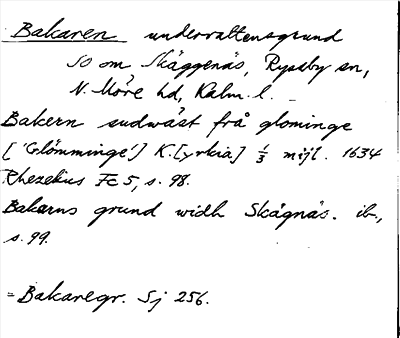 Bakaren undervattensgrund
SO om Skäggenäs, Ryssby sn,
N. Möre hd, Kalm. l.
Bakern sudwäst frå glominge
['Glömminge'] K.[yrkia] 1/3 mijl. 1634
Rhezelius Fc 5, s. 98.
Bakarns grund widh Skägnäs. ib.,
s. 99.
= Bakaregr. Sj 256.